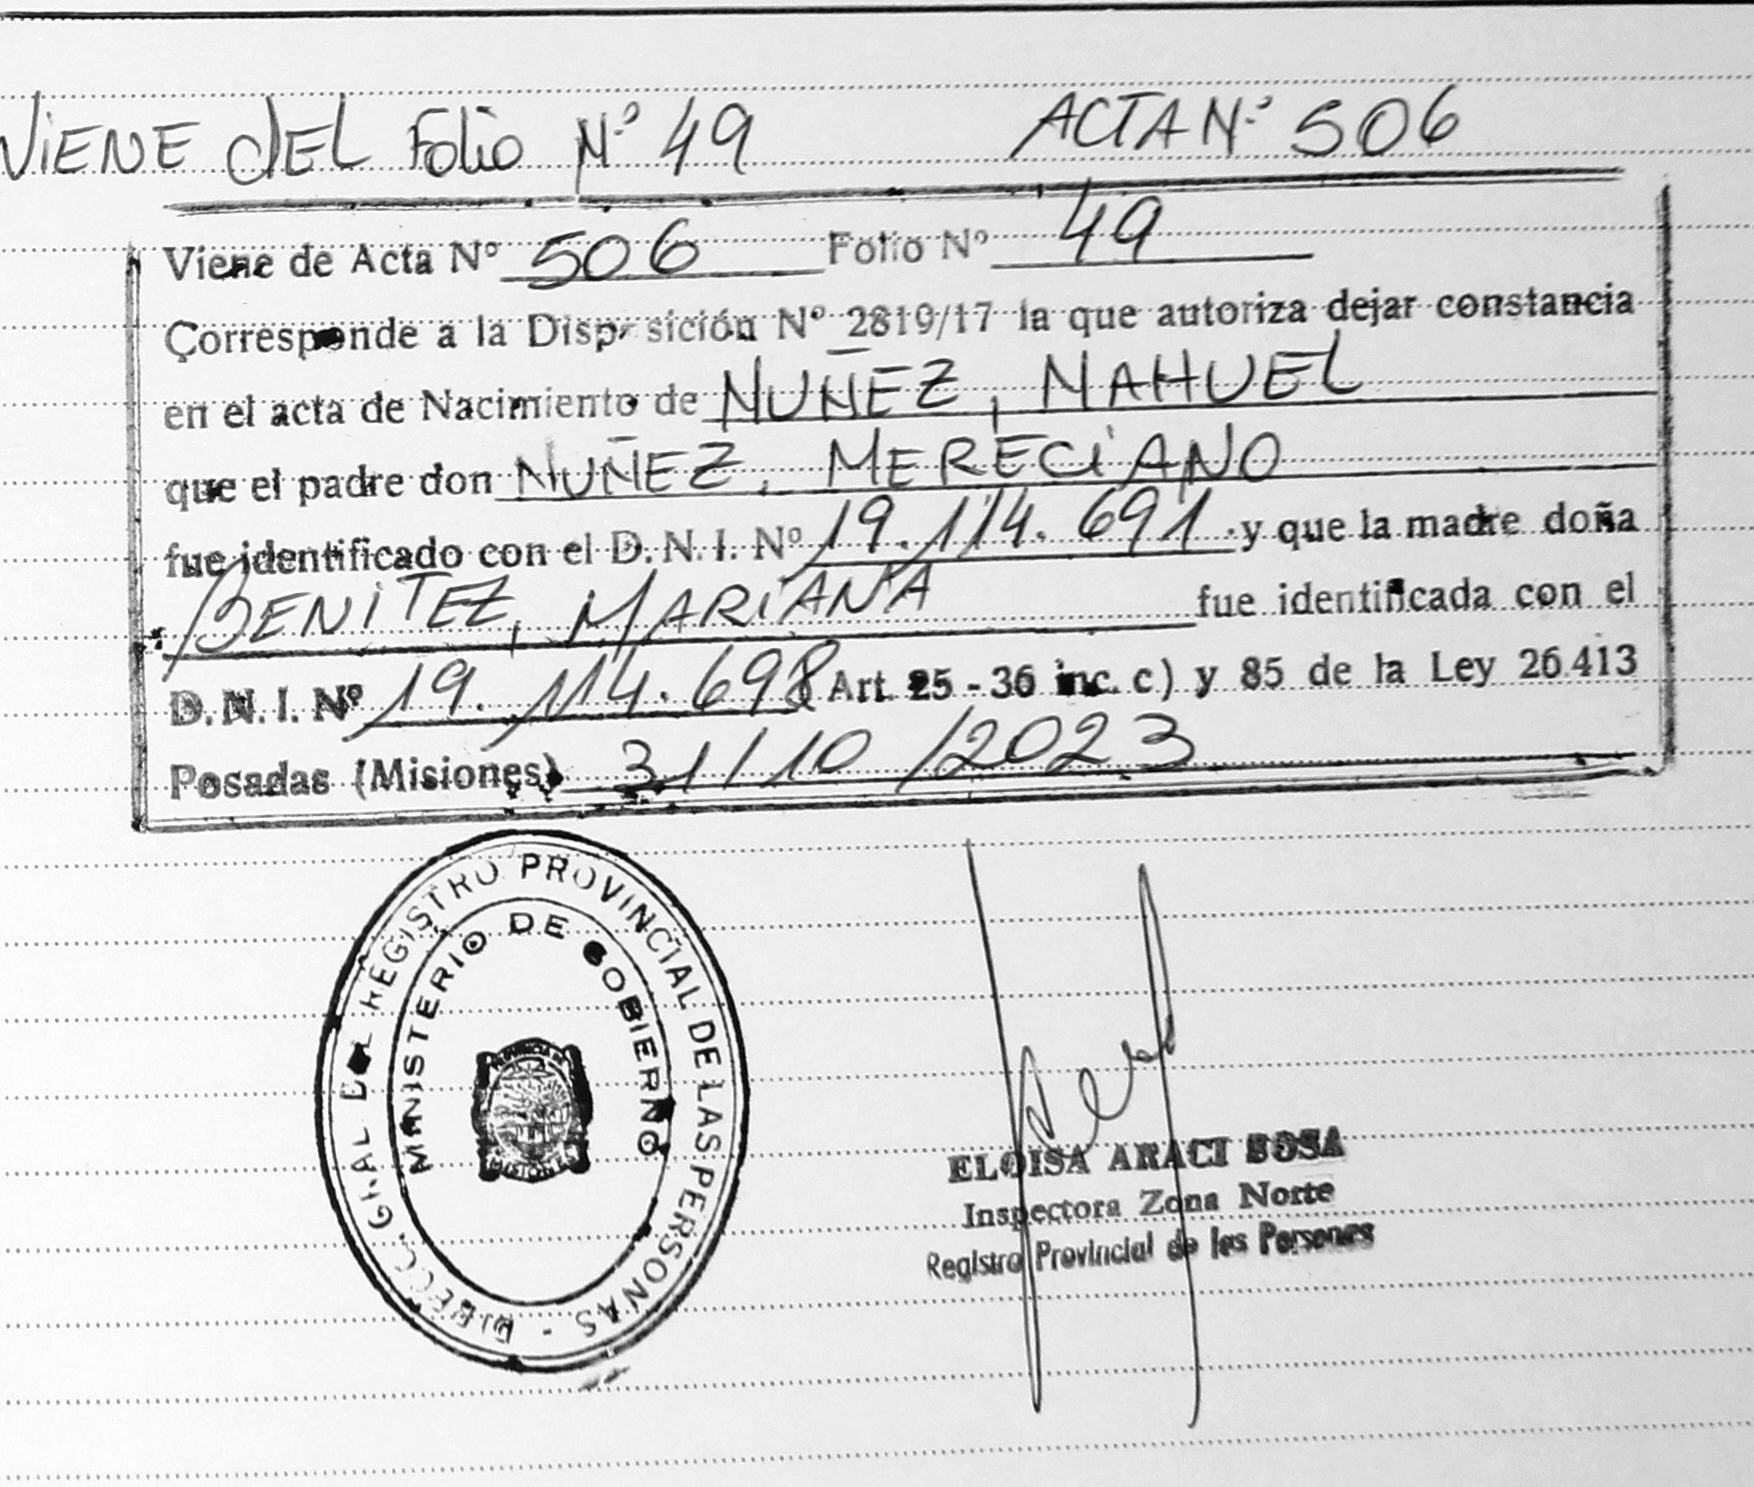 VIENE dEL Folio Nº 49 ACTA Nº 506
Viene de Acta Nº 506 Folio Nº 49
Corresponde a la Disposición Nº 2819/17 la que autoriza dejar constancia
en el acta de Nacimiento de NUÑEZ, NAHUEL
que el padre don NUÑEZ, MERECIANO
fue identificado con el D.N.I. Nº 19.114.691 y que la madre doña
BENITEZ, MARIANA fue identificada con el
D.N.I. Nº 19.114.698 Art. 25 - 36 inc. c) y 85 de la Ley 26.413
Posadas (Misiones) 31/10/2023
DIRECC. GRAL DEL REGISTRO PROVINCIAL DE LAS PERSONAS -
MINISTERIO DE GOBIERNO
PROVINCIA DE
MISIONES
ELOISA ARACI SOSA
Inspectora Zona Norte
Registro Provincial de las Personas